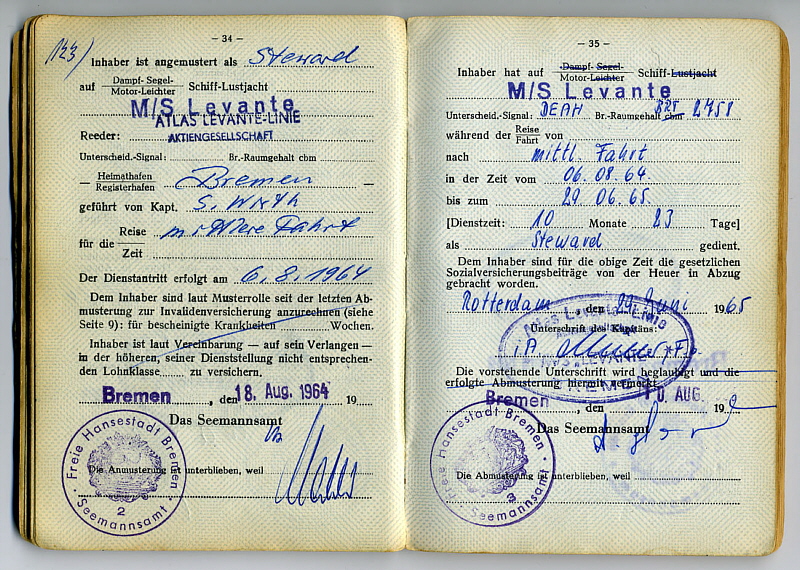 - 34 -
133)
Inhaber ist angemustert als Steward
auf Dampf- Segel- Motor-Leichter Schiff-Lustjacht
M/S Levante
ATLAS LEVANTE-LINIE
Reeder: AKTIENGESELLSCHAFT
Unterscheid.-Signal: Br.-Raumgehalt cbm
Heimathafen Registerhafen Bremen
geführt von Kapt. S. Wirth
für die Reise Zeit mittlere Fahrt
Der Dienstantritt erfolgt am 6.8.1964
Dem Inhaber sind laut Musterrolle seit der letzten Ab-
musterung zur Invalidenversicherung anzurechnen (siehe
Seite 9): für bescheinigte Krankheiten Wochen.
Inhaber ist laut Vereinbarung — auf sein Verlangen —
in der höheren, seiner Dienststellung nicht entsprechen-
den Lohnklasse zu versichern.
Bremen, den 18. Aug. 1964 19
Das Seemannsamt
Freie Hansestadt Bremen
Seemannsamt
2
Die Anmusterung ist unterblieben, weil
- 35 -
Inhaber hat auf Dampf- Segel- Motor-Leichter Schiff-Lustjacht
M/S Levante
Unterscheid.-Signal: DEAH Br.-Raumgehalt cbm BRT 2758
während der Reise Fahrt von
nach mittl. Fahrt
in der Zeit vom 06.08.64.
bis zum 29.06.65.
[Dienstzeit: 10 Monate 23 Tage]
als Steward gedient.
Dem Inhaber sind für die obige Zeit die gesetzlichen
Sozialversicherungsbeiträge von der Heuer in Abzug
gebracht worden.
Rotterdam, den 29. Juni 1965
Unterschrift des Kapitäns:
i.A.
Die vorstehende Unterschrift wird beglaubigt und die
erfolgte Abmusterung hiermit vermerkt.
Bremen, den AUG. 19
Das Seemannsamt
Freie Hansestadt Bremen
Seemannsamt
3
Die Abmusterung ist unterblieben, weil